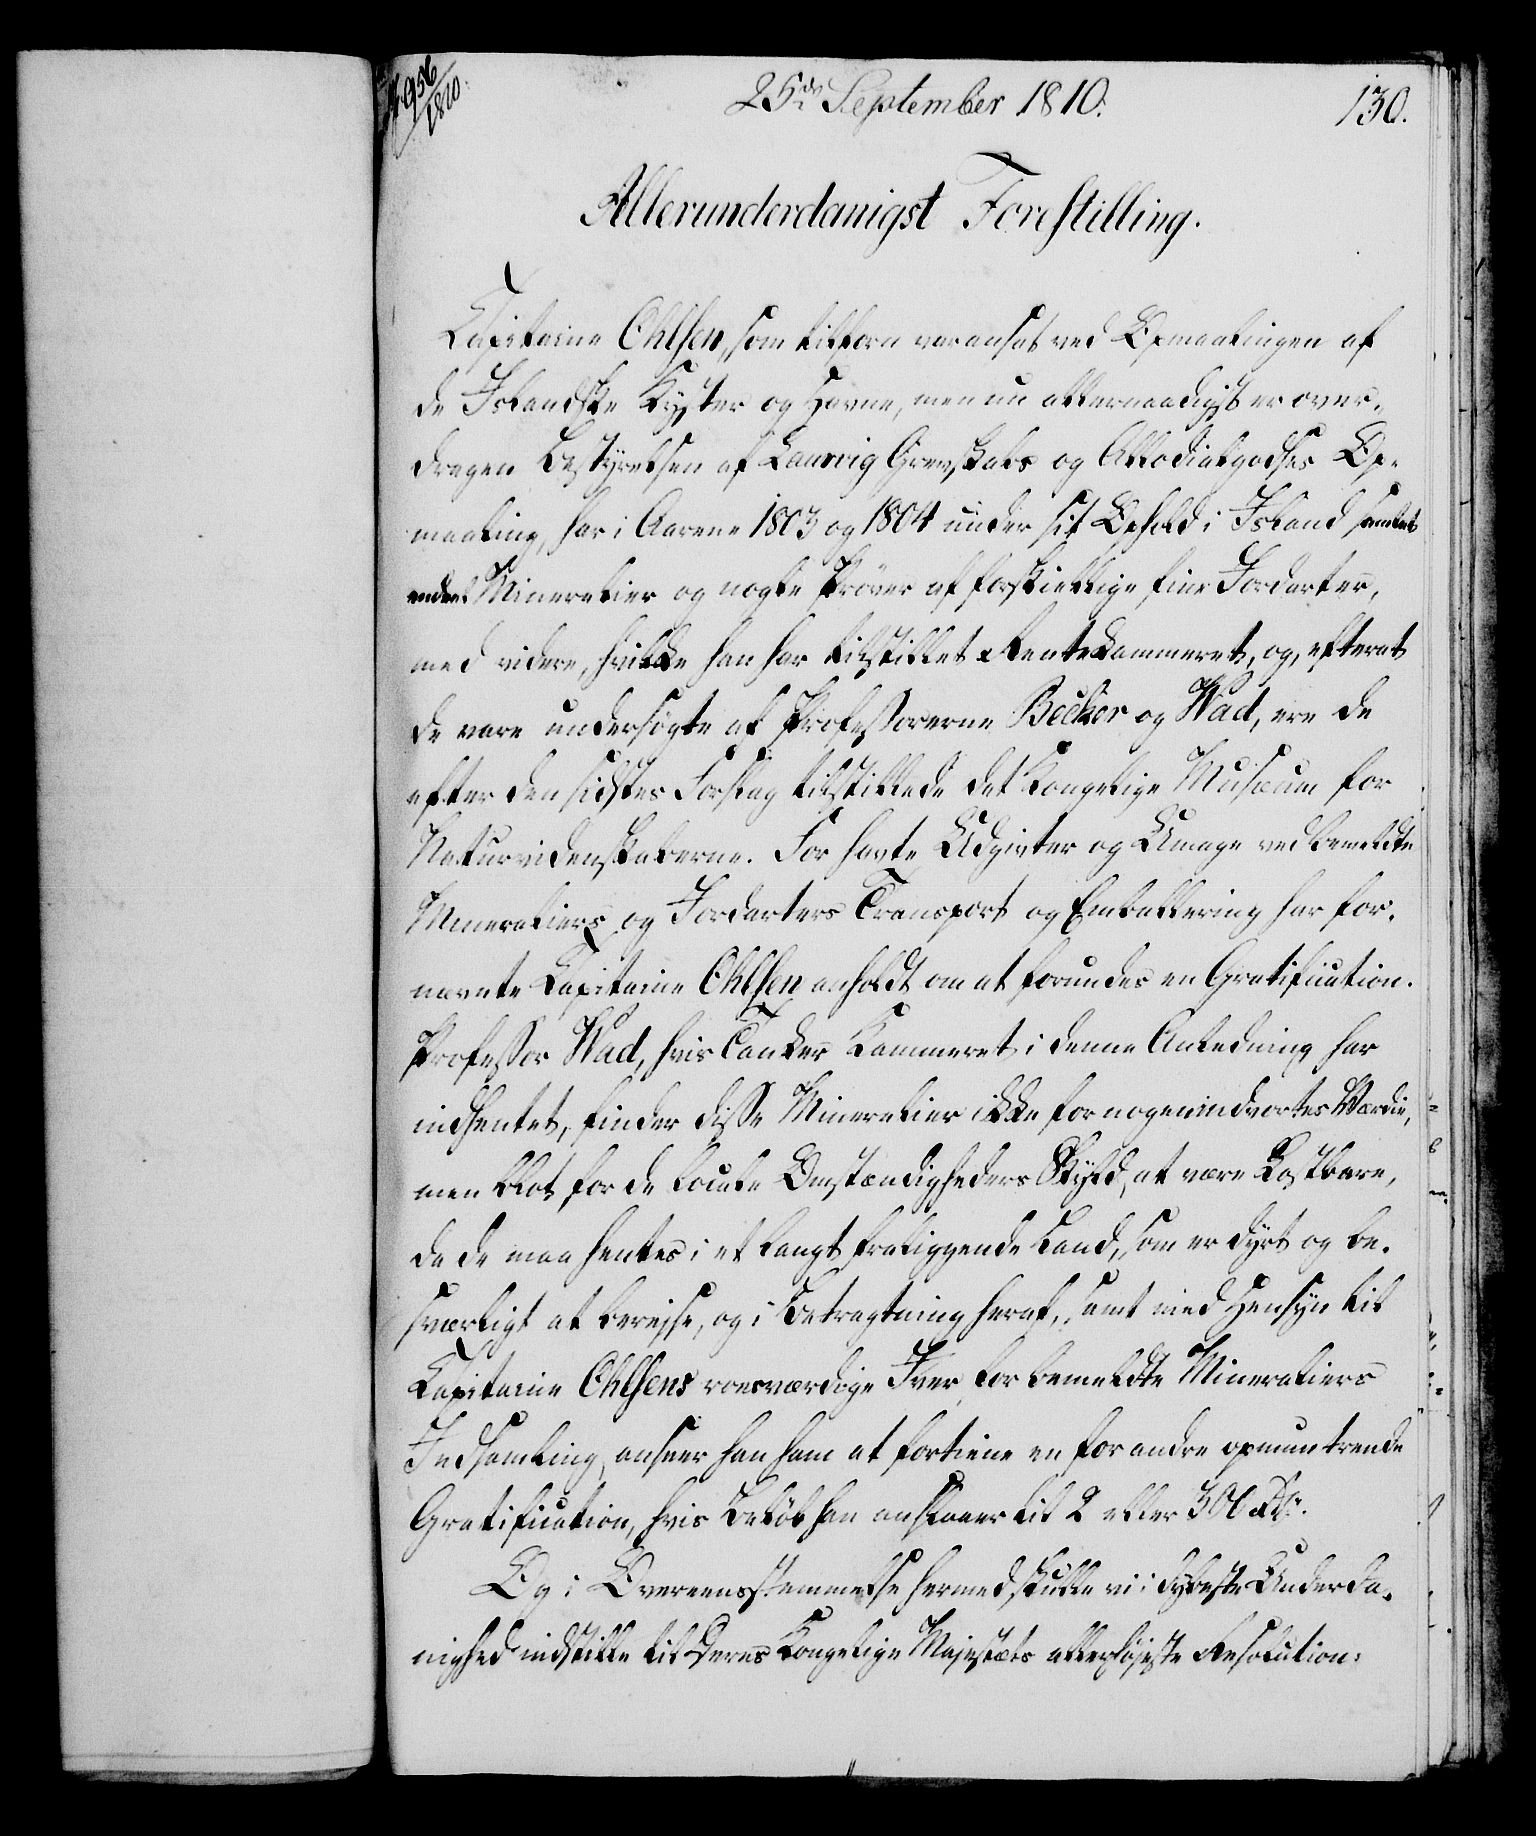 N. 956
1810.
25de September 1810.
130.
Allerunderdanigst Forestilling.
Capitaine Ohlsen, som tilforn var ansat ved Opmaalingen af
de Islandske Kyster og Havne, men nu allernaadigst er over-
dragen Bestyrelsen af Laurvig Grevskabs og Allodialgodses Op-
maaling, har i Aarene 1803 og 1804 under sit Ophold i Island samlet
endeel Mineralier og nogle Prøver af forskiellige fine Jordarter,
med videre, hvilke han har tilstillet Rentekammeret, og, efterat
de vare undersøgte af Professorerne Becker og Wad, ere de
efter den sidstes Forslag tilstillede det Kongelige Musæum for
Naturvidenskaberne. For havte Udgivter og Umage ved bemeldte
Mineraliers og Jordarters Transport og Emballering har for-
nævnte Capitaine Ohlsen anholdt om at forundes en Gratification.
Professor Wad, hvis Tanker Kammeret i denne Anledning har
indhentet, finder disse Mineralier ikke for nogen indvortes Værdie,
men blot for de locale Omstændigheders Skyld, at være kostbare,
da de maa hentes i et langt fraliggende Land, som er dyrt og be-
sværligt at bereise, og i Betragtning heraf, samt med Hensyn til
Capitaine Ohlsens roesværdige Iver for bemeldte Mineraliers
Indsamling, anseer han ham at fortiene en for andre opmuntrende
Gratification, hvis Beløb han anslaaer til 2 eller 300 Rd.
Og i Overeensstemmelse hermed skulle vi i dybeste Underda-
nighed indstille til Deres Kongelige Majestæts allerhøieste Resolution: